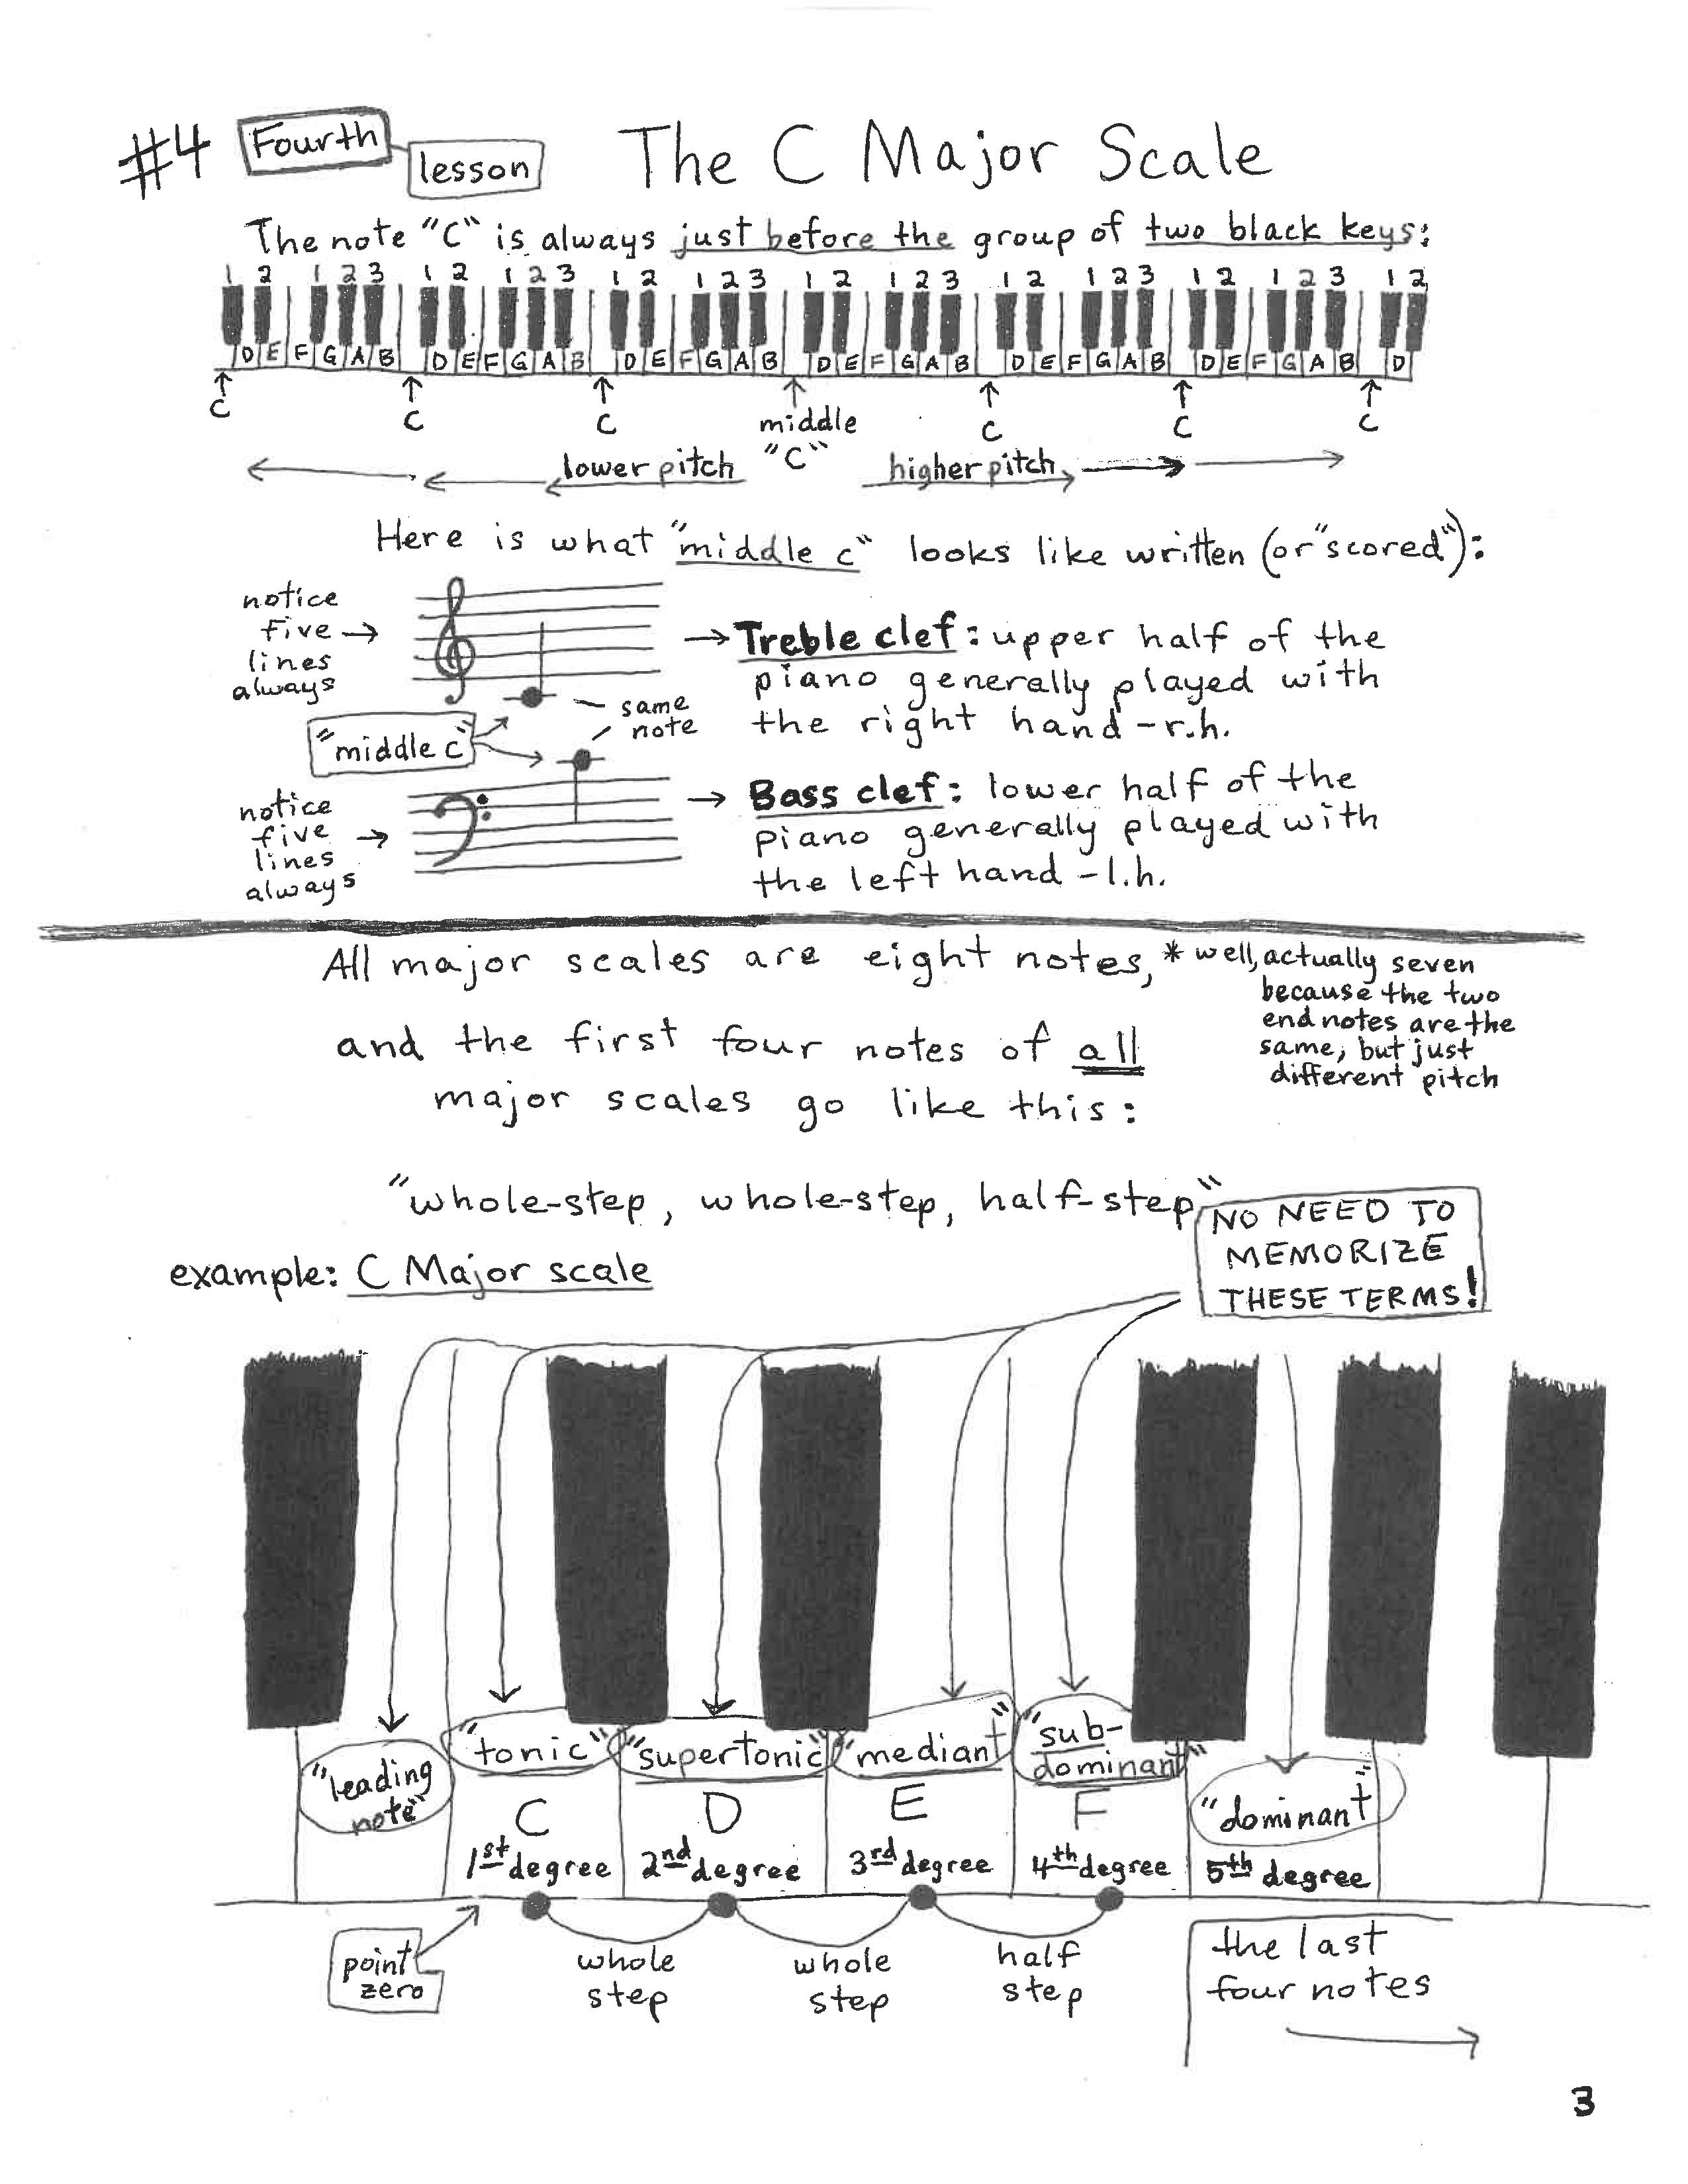 #4 Fourth lesson The C Major Scale
The note "C" is always just before the group of two black keys:
1 2 1 2 3 1 2 1 2 3 1 2 1 2 3 1 2 1 2 3 1 2 1 2 3 1 2 1 2 3 1 2
D E F G A B D E F G A B D E F G A B D E F G A B D E F G A B D E F G A B D
C C C middle "C" C C C
lower pitch higher pitch
Here is what "middle c" looks like written (or "scored"):
notice
five
lines
always
Treble clef: upper half of the
piano generally played with
the right hand - r.h.
same
note
"middle c"
notice
five
lines
always
Bass clef: lower half of the
piano generally played with
the left hand - l.h.
All major scales are eight notes,
* well, actually seven
because the two
end notes are the
same, but just
different pitch
and the first four notes of all
major scales go like this:
"whole-step, whole-step, half-step"
NO NEED TO
MEMORIZE
THESE TERMS!
example: C Major scale
"leading
note"
"tonic"
C
1st degree
"supertonic"
D
2nd degree
"mediant"
E
3rd degree
"sub-
dominant"
F
4th degree
"dominant"
5th degree
point
zero
whole
step
whole
step
half
step
the last
four notes
3